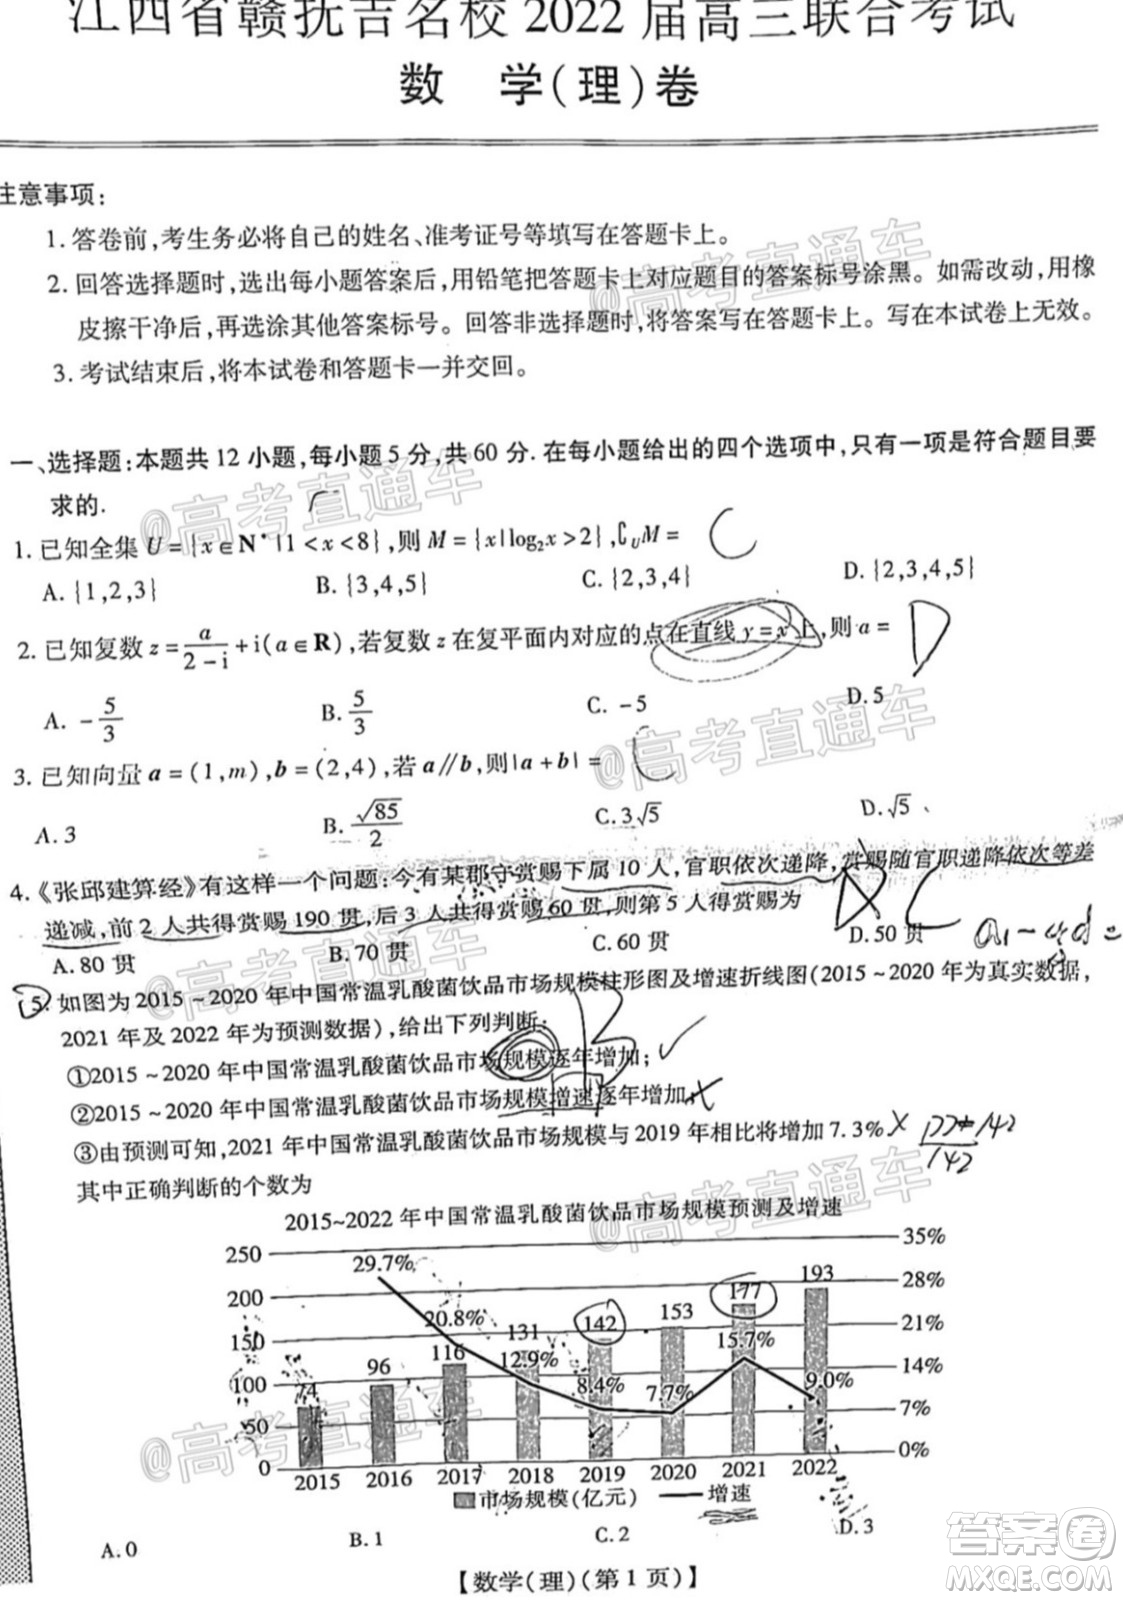 江西省赣抚吉名校 2022 届高三联合考试
数 学(理)卷
注意事项:
1. 答卷前,考生务必将自己的姓名、准考证号等填写在答题卡上。
2. 回答选择题时,选出每小题答案后,用铅笔把答题卡上对应题目的答案标号涂黑。如需改动,用橡
皮擦干净后,再选涂其他答案标号。回答非选择题时,将答案写在答题卡上。写在本试卷上无效。
3. 考试结束后,将本试卷和答题卡一并交回。
一、选择题:本题共 12 小题,每小题 5 分,共 60 分. 在每小题给出的四个选项中,只有一项是符合题目要
求的.
1. 已知全集 U = {x ∈ N* | 1 < x < 8},则 M = {x | log₂x > 2},∁ᵤM = C
A. {1,2,3} B. {3,4,5} C. {2,3,4} D. {2,3,4,5}
2. 已知复数 z = a/(2 - i) + i(a ∈ R),若复数 z 在复平面内对应的点在直线 y = x 上,则 a = D
A. -5/3 B. 5/3 C. -5 D. 5
3. 已知向量 a = (1,m),b = (2,4),若 a∥b,则|a + b| = C
A. 3 B. √85/2 C. 3√5 D. √5
4.《张邱建算经》有这样一个问题:今有某郡守赏赐下属 10 人,官职依次递降,赏赐随官职递降依次等差
递减,前 2 人共得赏赐 190 贯,后 3 人共得赏赐 60 贯,则第 5 人得赏赐为 C a₁-4d=
A. 80 贯 B. 70 贯 C. 60 贯 D. 50 贯
5. 如图为 2015 ~ 2020 年中国常温乳酸菌饮品市场规模柱形图及增速折线图(2015 ~ 2020 年为真实数据,
2021 年及 2022 年为预测数据),给出下列判断: B
①2015 ~ 2020 年中国常温乳酸菌饮品市场规模逐年增加; ✓
②2015 ~ 2020 年中国常温乳酸菌饮品市场规模增速逐年增加; ×
③由预测可知,2021 年中国常温乳酸菌饮品市场规模与 2019 年相比将增加 7.3% × 177-142/142
其中正确判断的个数为
2015~2022 年中国常温乳酸菌饮品市场规模预测及增速
250 35%
29.7% 193
200 177 28%
20.8% 153
150 131 142 15.7% 21%
116
96 12.9% 14%
100 74 8.4% 7.7% 9.0%
50 7%
0 0%
2015 2016 2017 2018 2019 2020 2021 2022
市场规模(亿元) 增速
A. 0 B. 1 C. 2 D. 3
【数学(理)(第 1 页)】
@高考直通车
@高考直通车
@高考直通车
@高考直通车
@高考直通车
@高考直通车
答案圈
MXQE.COM